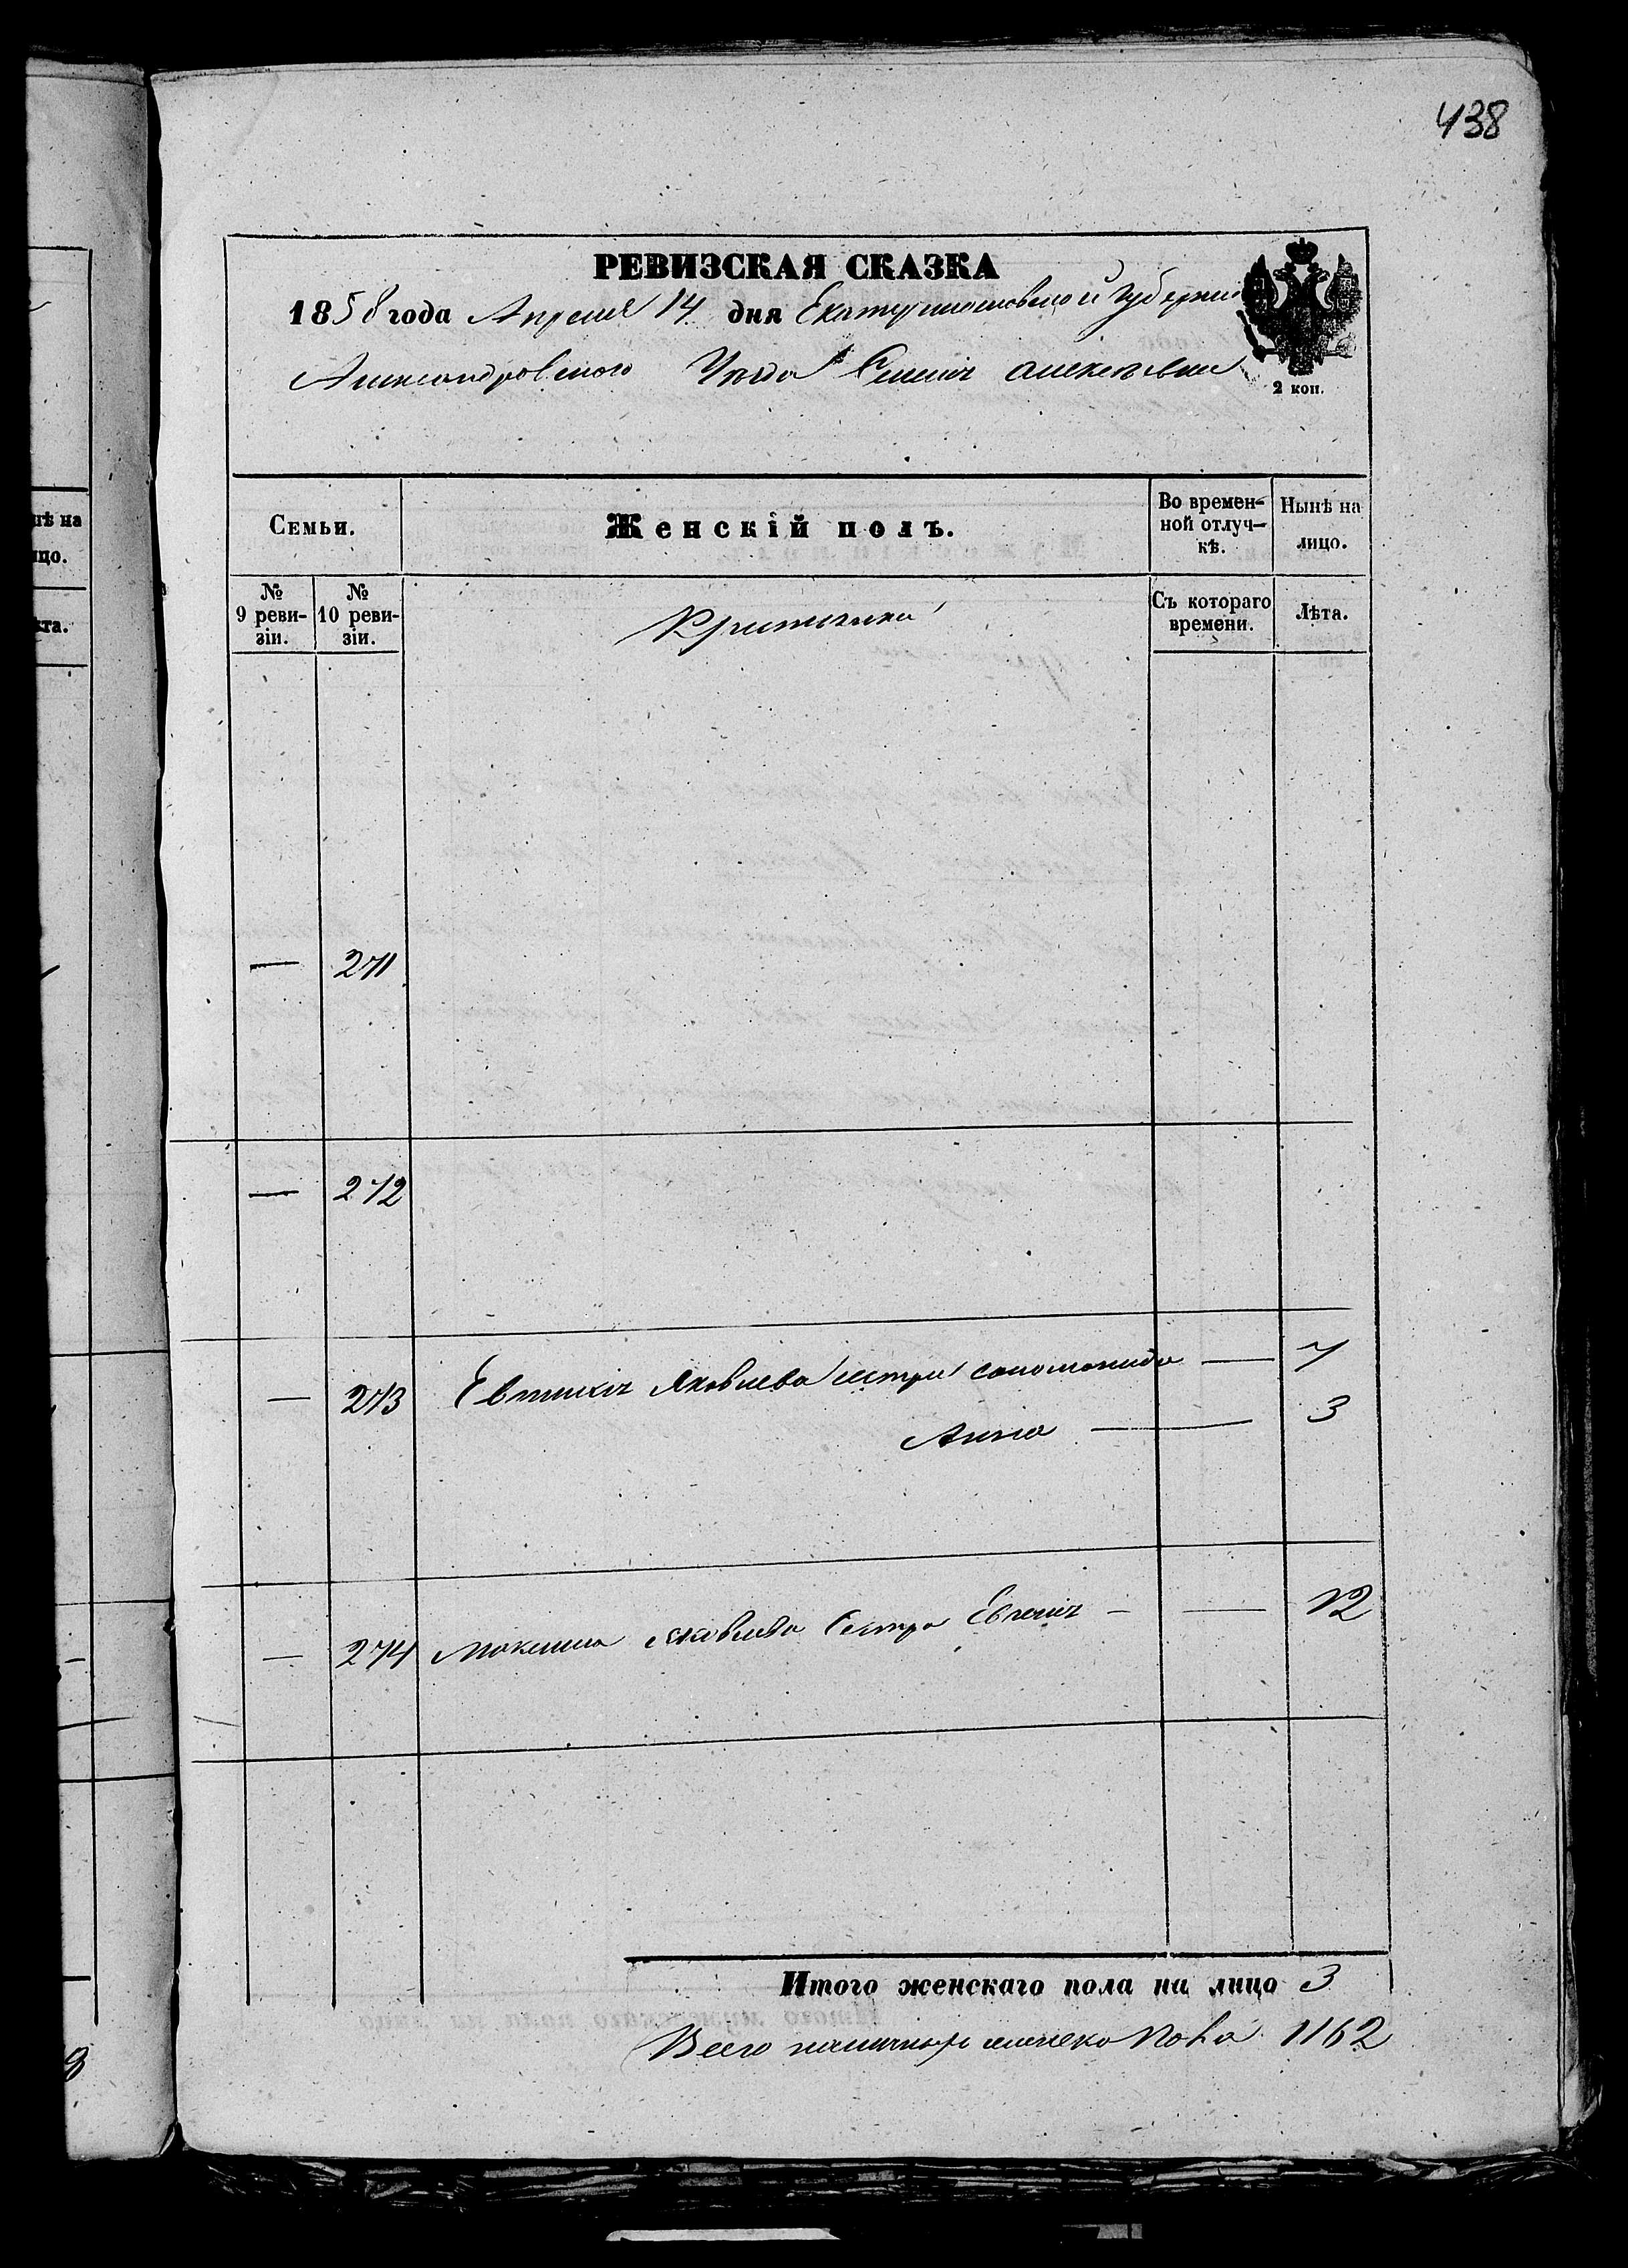 438
РЕВИЗСКАЯ СКАЗКА
1858 года Апреля 14 дня Екатеринославской Губернии
Александровского Уезда Селенія Алексеевки
2 коп.
Семьи.
Женскій полъ.
Во времен-
ной отлуч-
кѣ.
Нынѣ на
лицо.
№
9 реви-
зіи.
№
10 реви-
зіи.
Съ котораго
времени.
Лѣта.
— 271
— 272
— 273 Евтихія Яковлева сестры Соломонида — 7
Анна — 3
— 274 Яковлева Сестра Евгенія — — 12
Итого женскаго пола на лицо 3
Всего пола 1162
нѣ на
ицо.
ѣта.